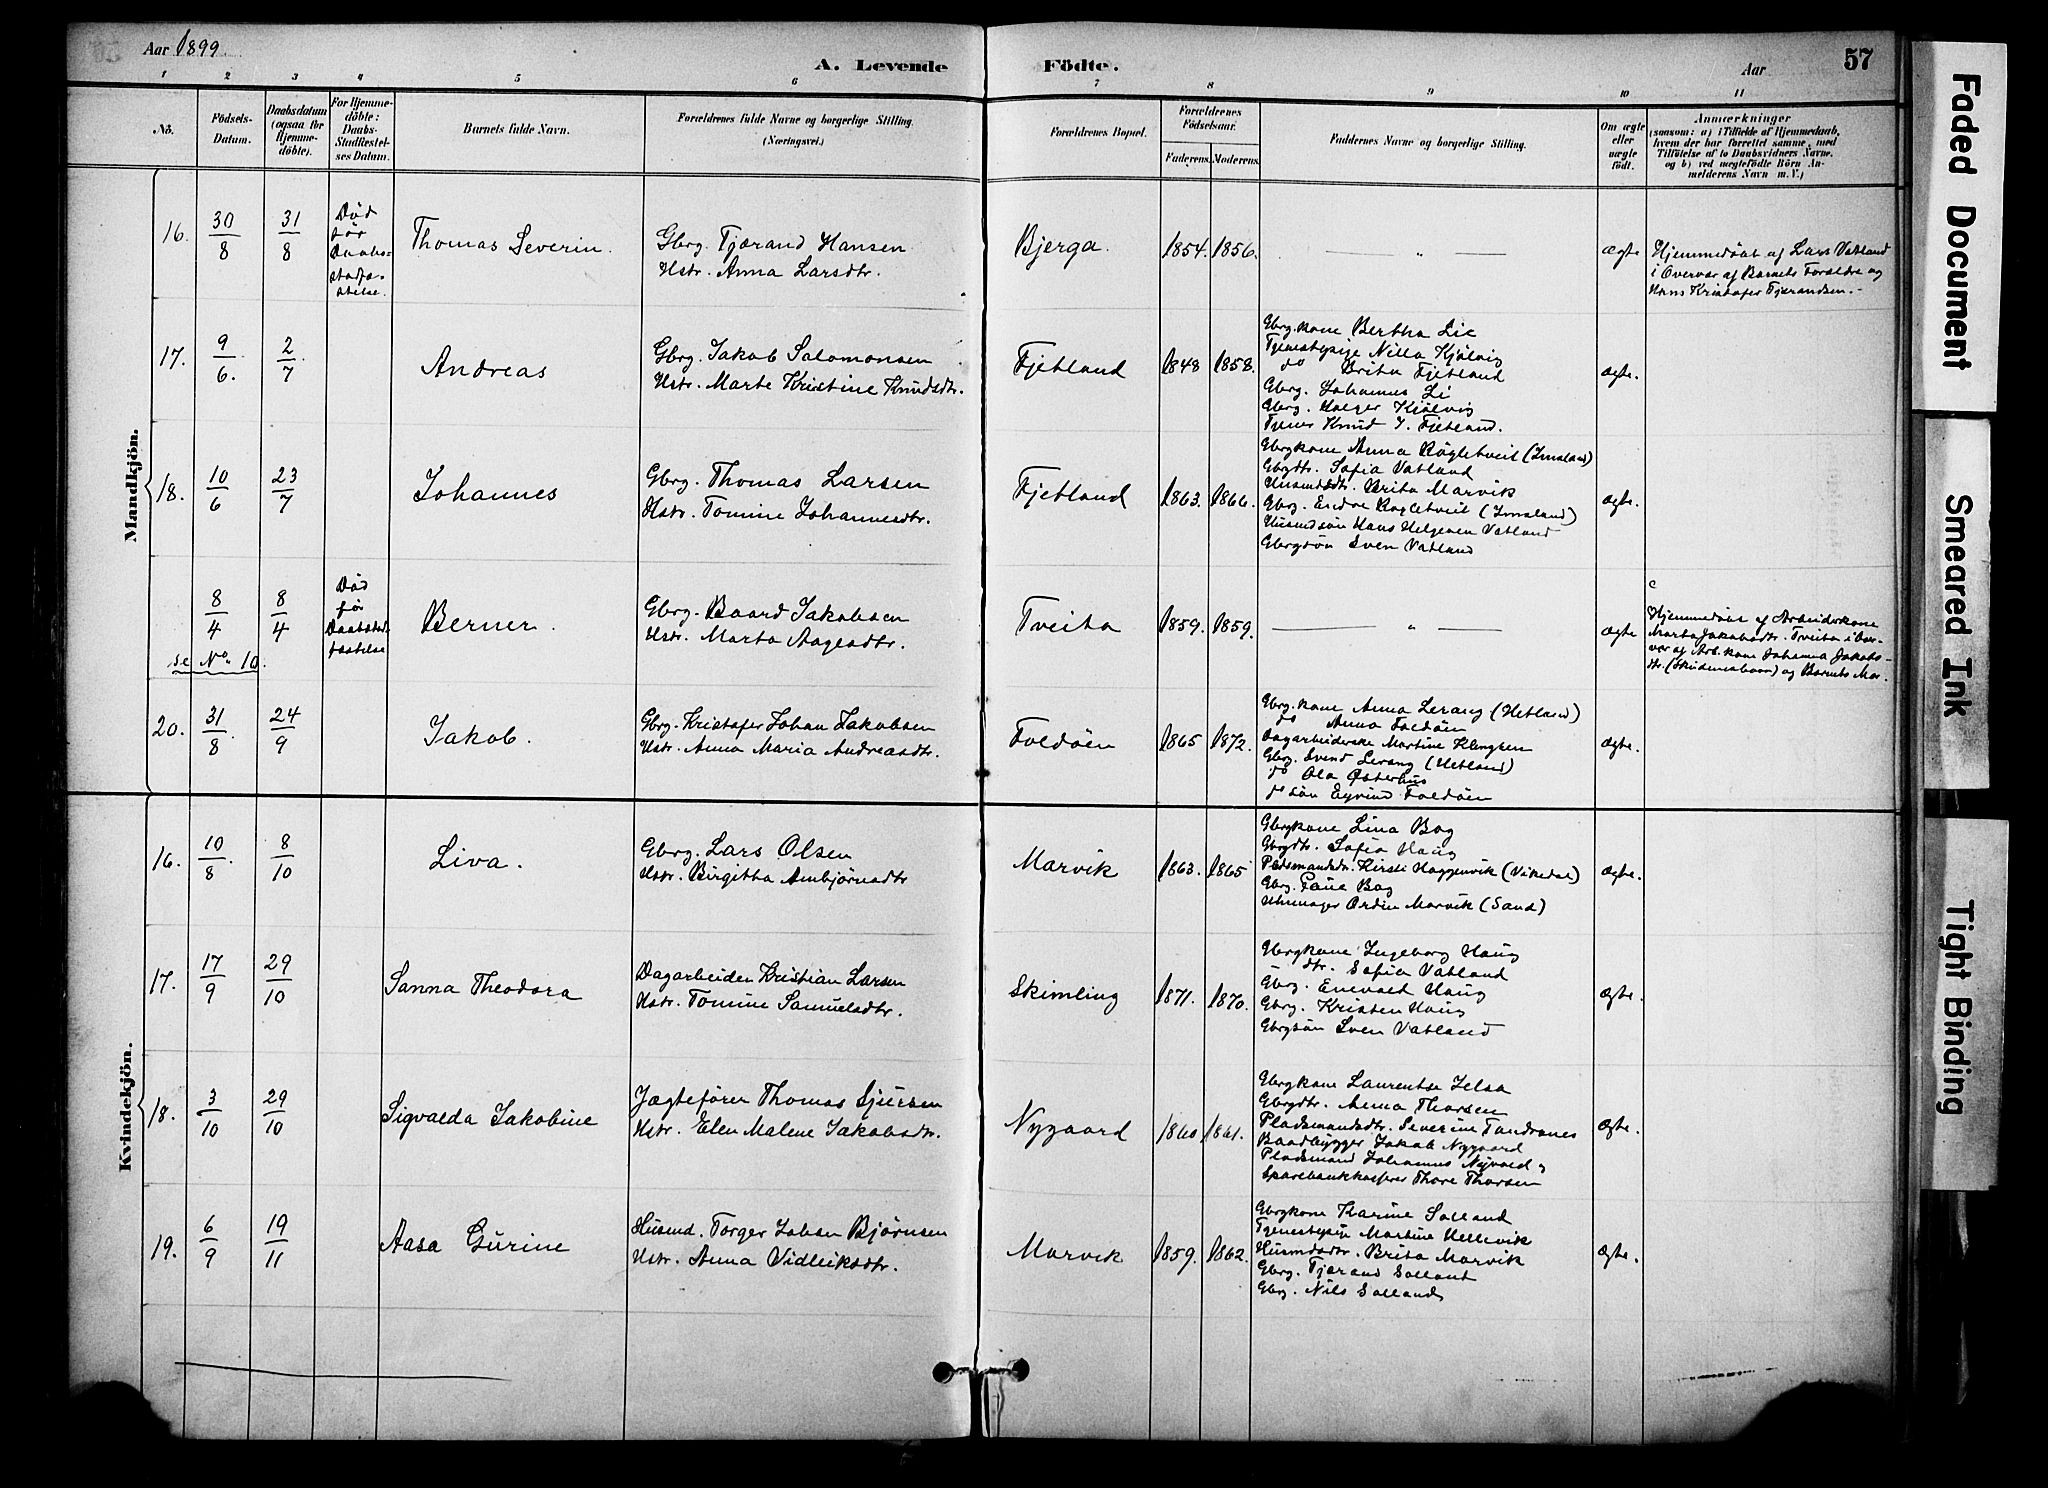 Aar 1899
A. Levende Födte.
Aar
57
1 2 3 4 5 6 7 8 9 10 11
No.
Födsels-Datum.
Daabsdatum (ogsaa for Hjemme-döbte).
For Hjemme-döbte: Daabs-Stadfæstel-ses Datum.
Barnets fulde Navn.
Forældrenes fulde Navne og borgerlige Stilling.
(Næringsvei.)
Forældrenes Bopæl.
Forældrenes Födselsaar.
Faderens. Moderens.
Faddernes Navne og borgerlige Stilling.
Om ægte eller uægte födt.
Anmærkninger
(saasom: a) i Tilfælde af Hjemmedaab,
hvem der har forrettet samme, med
Tilföielse af to Daabsvidners Navne,
og b) ved uægtefödte Börn An-
melderens Navn m. V.)
Mandkjön.
16. 30/8 31/8
Död
før
Daabs-
stadfæ-
stelse.
Thomas Severin.
Gbrg. Tjærand Hansen
Hstr. Anna Larsdtr.
Bjerga. 1854. 1856. — " — ægte
Hjemmedøbt af Lars Vatland
i Overvær af Barnets Forældre og
Hans Kristofer Tjærandsen.
17. 9/6. 2/7
Andreas
Gbrg. Jakob Salomonsen
Hstr. Marte Kristine Knudsdtr.
Fjetland 1848 1858.
Gbrg.kone Bertha Lie
Tjenestepige Nilla Kjølvig
do Brita Fjetland
Gbrg. Johannes Li
Gbrg. Holger Kjølvig
Tjener Knud J. Fjetland.
ægte.
18. 10/6 23/7
Johannes
Gbrg. Thomas Larsen
Hstr. Tomine Johannesdtr.
Fjetland 1863. 1866.
Gbrgkone Anna Røgletveit (Imsland)
Gbrgdtr. Sofia Vatland
Husmdsdtr. Brita Marvik
Gbrg. Endre Røgletveit (Imsland)
Husmdsøn Hans Helgesen Vatland
Gbrgsøn Sven Vatland
ægte.
8/4 8/4
se No. 10.
Död
før
Daabsstad-
fæstelse
Berner.
Gbrg. Baard Jakobsen
Hstr. Marta Aagesdtr.
Tveita 1859. 1859. — " — ægte
Hjemmedøbt af Arbeiderkone
Marta Jakobsdtr. Tveita i Over-
vær af Arb.kone Johanna Jakobs-
dtr. (Skudeneshavn) og Barnets Mor.
20. 31/8 24/9
Jakob.
Gbrg. Kristofer Johan Jakobsen
Hstr. Anna Maria Andreasdtr.
Foldøen 1865 1872.
Gbrg.kone Anna Lerang (Hetland)
do Anna Foldøen
Dagarbeiderske Martine Klingsen
Gbrg. Svend Lerang (Hetland)
do Ola Østerhus
do søn Eyvind Foldøen
ægte.
Kvindekjön.
16. 10/8. 8/10
Liva.
Gbrg. Lars Olsen
Hstr. Birgitha Ambjørnsdtr
Marvik 1863. 1865
Gbrgkone Lina Bog
Gbrgdtr. Sofia Haug
Pladsmandsdtr. Kirsti Haggenvik (Vikedal)
Gbrg. Paul Bog
Uhrmager Ordin Marvik (Sand)
ægte.
17. 17/9 29/10
Sanna Theodora
Dagarbeider Kristian Larsen
Hstr. Tomine Samuelsdtr.
Skimling 1871. 1870.
Gbrgkone Ingeborg Haug
" dtr. Sofia Vatland
Gbrg. Enevald Haug
Gbrg. Kristen Haug
Gbrgsøn Sven Vatland
ægte.
18. 3/10 29/10
Sigvalda Jakobine
Jægtefører Thomas Sjursen
Hstr. Elen Malene Jakobsdtr.
Nygaard 1860 1861.
Gbrgkone Laurentse Jelsa
Gbrgdtr. Anna Thorsen
Pladsmandsdtr. Severine Tandranes
Baadbygger Jakob Nygaard
Pladsmand Johannes Nyvold
Sparebankkasserer Thore Thorsen
ægte.
19. 6/9 19/11
Aasa Gurine
Husmd. Torger Johan Bjørnsen
Hstr. Anna Vidleiksdtr.
Marvik 1859. 1862.
Gbrgkone Karine Solland
Tjenestepige Martine Hellevik
Husmdsdtr. Brita Marvik
Gbrg. Tjærand Solland
Gbrg. Nils Solland
ægte.
Faded Document
Smeared Ink
Tight Binding